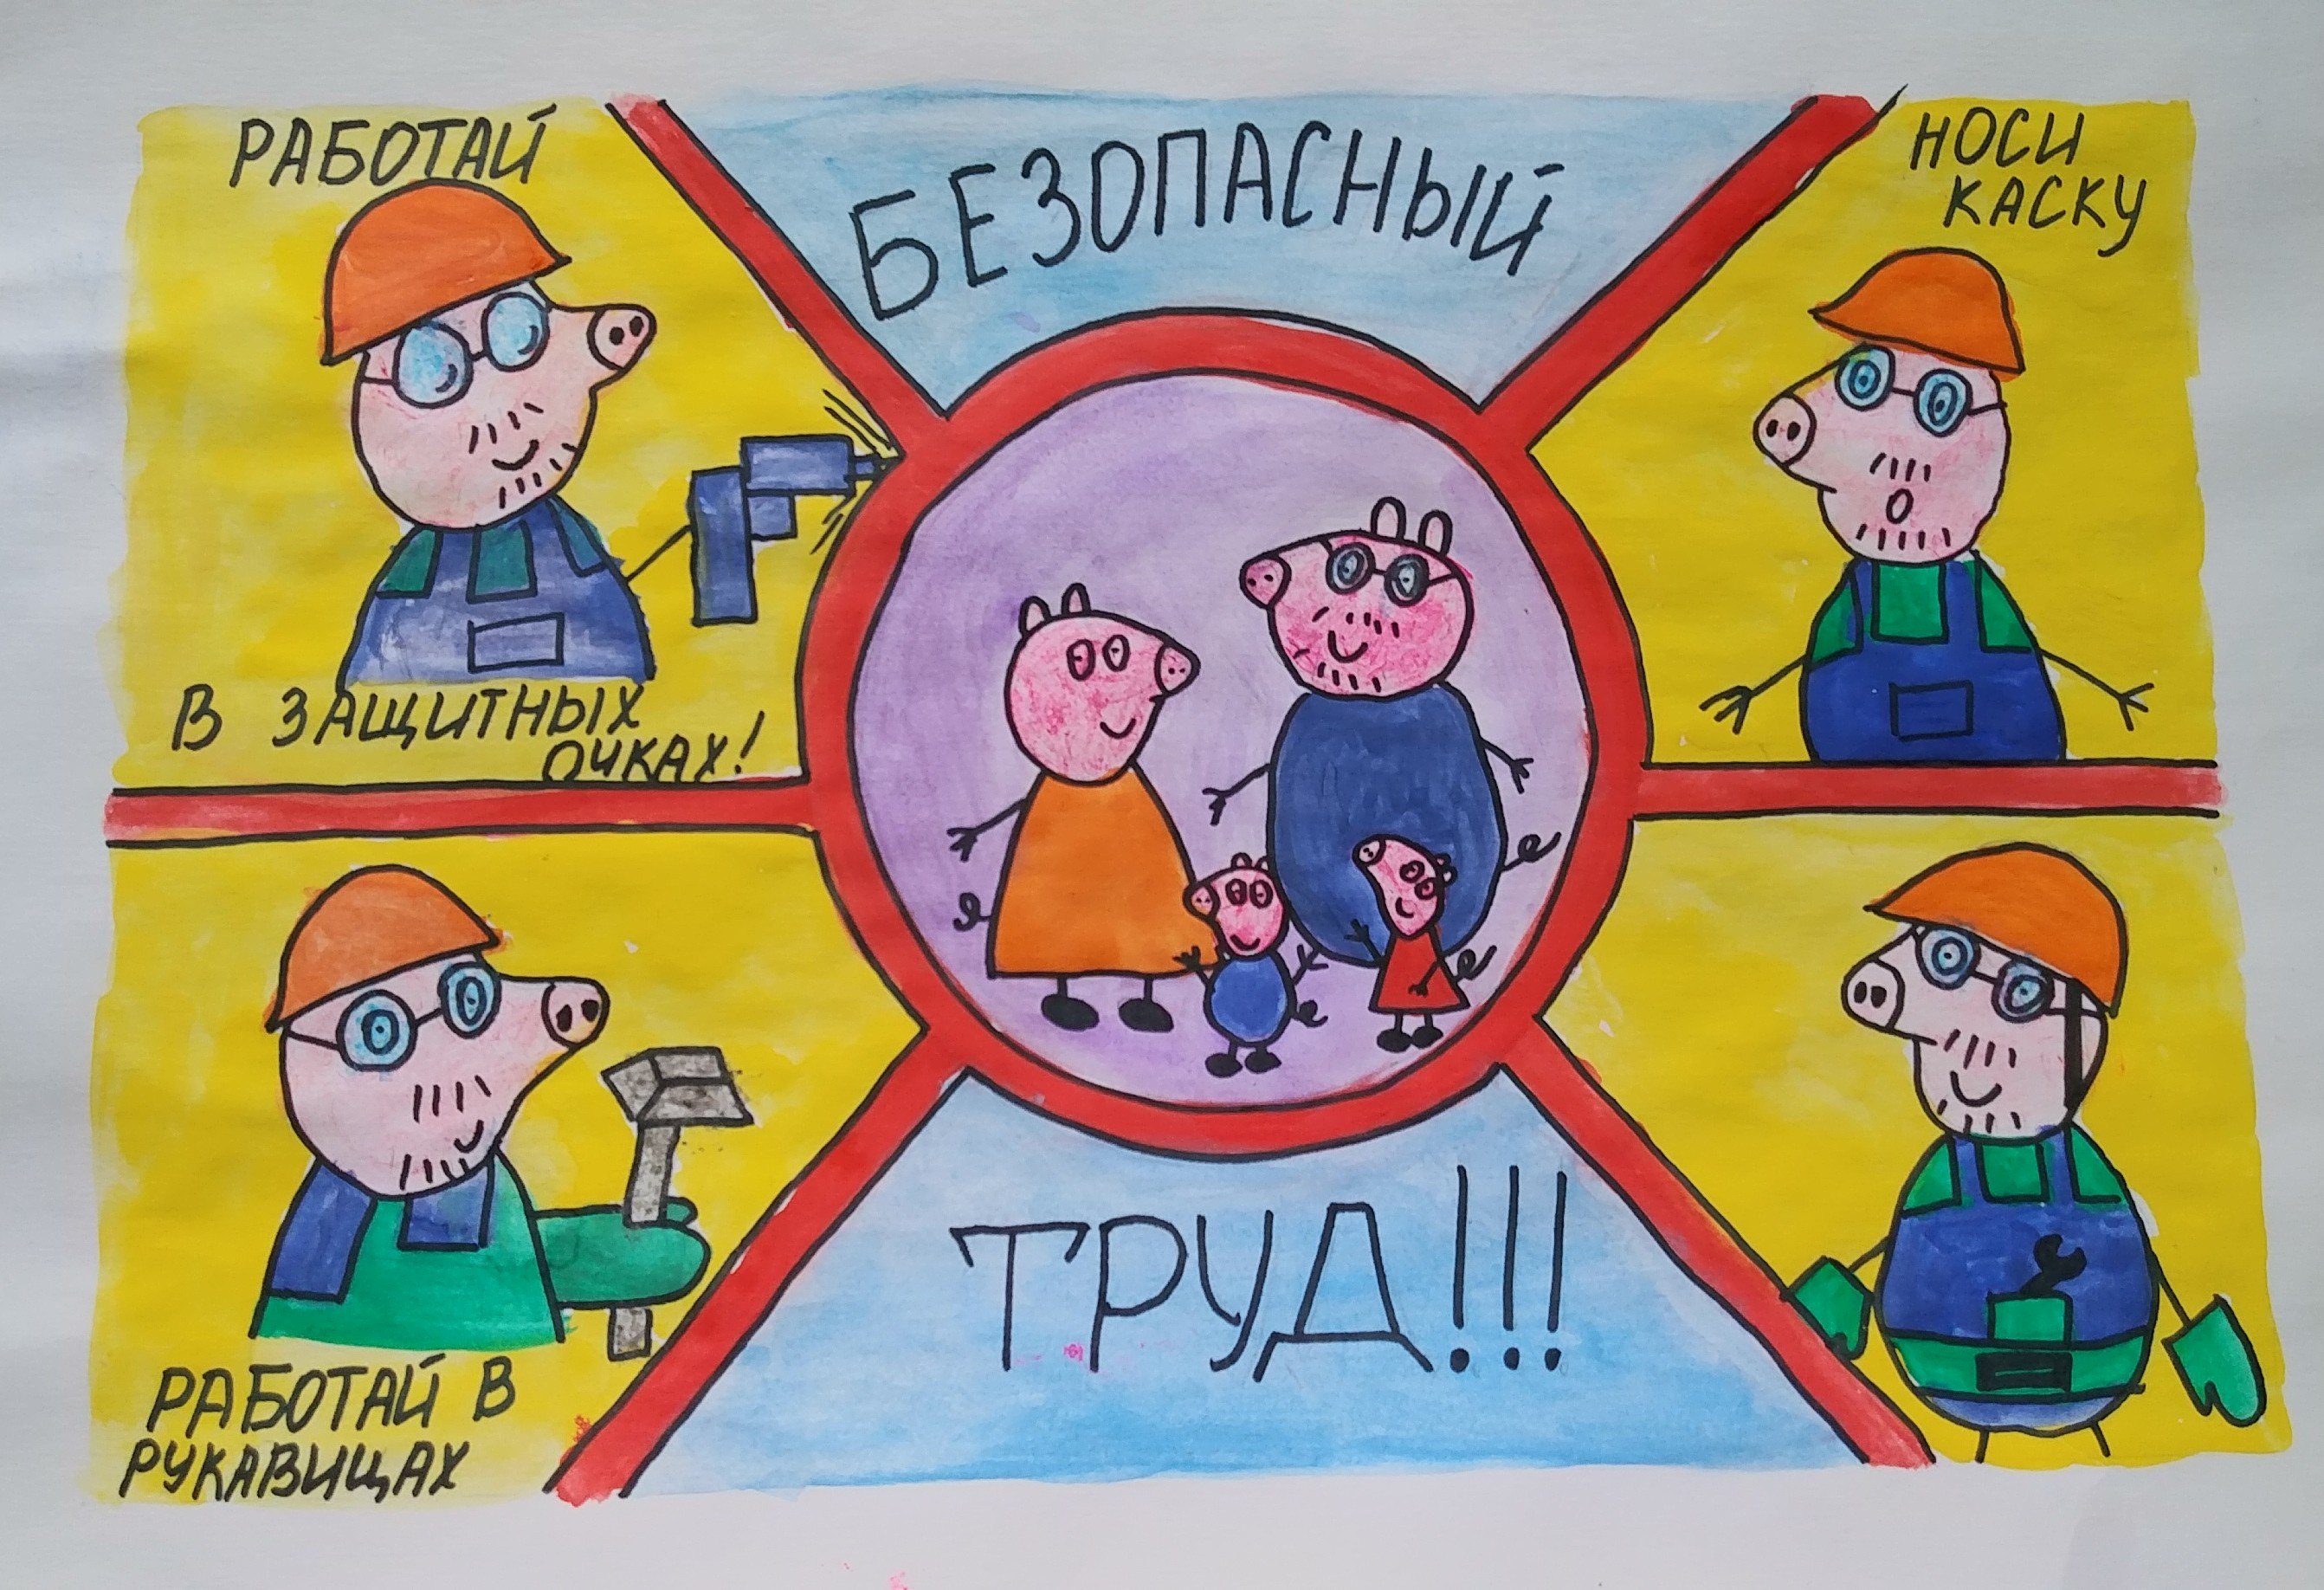 РАБОТАЙ
В ЗАЩИТНЫХ
ОЧКАХ!
БЕЗОПАСНЫЙ
ТРУД!!!
НОСИ
КАСКУ
РАБОТАЙ В
РУКАВИЦАХ